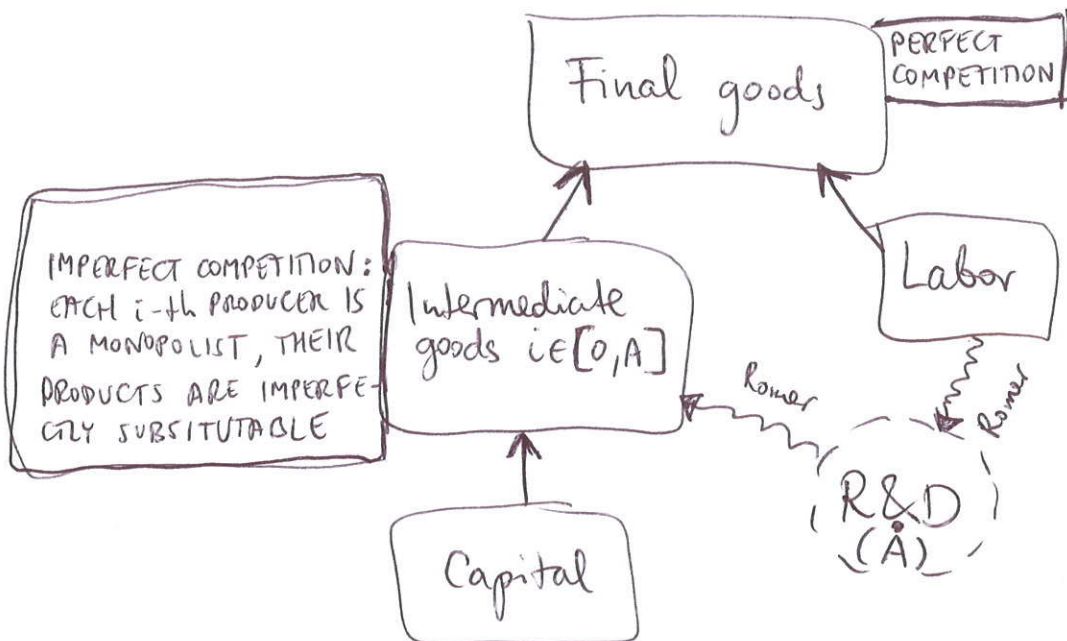 Final goods
PERFECT
COMPETITION
IMPERFECT COMPETITION:
EACH i-th PRODUCER IS
A MONOPOLIST, THEIR
PRODUCTS ARE IMPERFE-
CTLY SUBSITUTABLE
Intermediate
goods i∈[0,A]
Labor
Romer
Romer
R&D
(Ȧ)
Capital